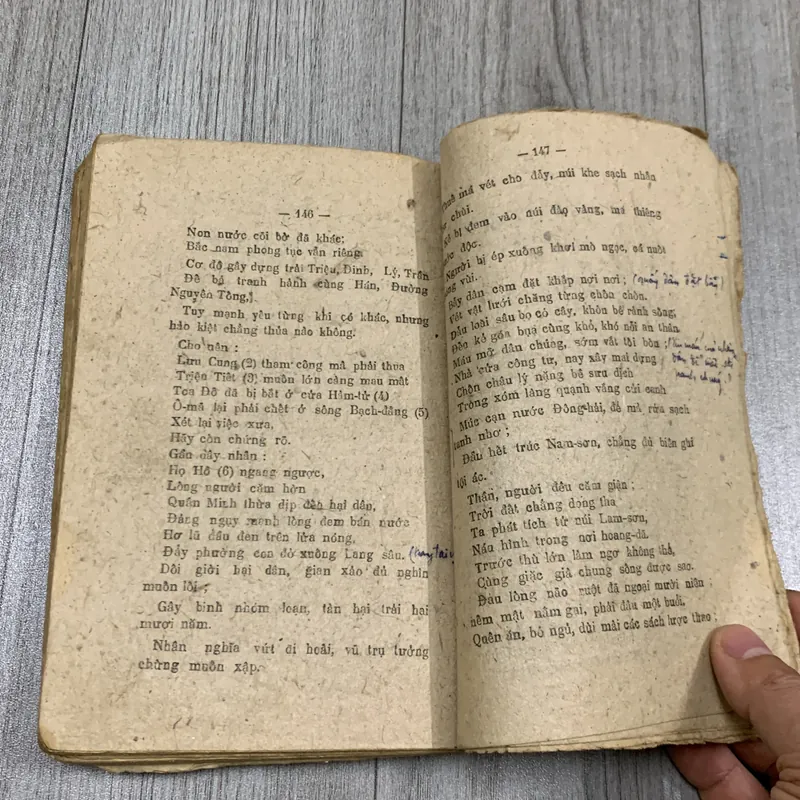 — 146 —
Non nước cõi bờ đã khác;
Bắc nam phong tục vẫn riêng.
Cơ đồ gây dựng trải Triệu, Đinh, Lý, Trần
Đế bá tranh hành cùng Hán, Đường
Nguyên Tống,
Tuy mạnh yếu từng khi có khác, nhưng
hào kiệt chẳng thủa nào không.
Cho nên :
Lưu Cung (2) tham công mà phải thua
Triệu Tiết (3) muốn lớn càng mau mất
Toa Đô đã bị bắt ở cửa Hàm-tử (4)
Ô-mã lại phải chết ở sông Bạch-đằng (5)
Xét lại việc xưa,
Hãy còn chứng rõ.
Gần đây nhân :
Họ Hồ (6) ngang ngược,
Lòng người căm hờn
Quân Minh thừa dịp đến hại dân,
Đảng ngụy mạnh lòng đem bán nước
Hơ lũ dân đen trên lửa nóng,
Đẩy phường con đỏ xuống hang sâu.
Dối giời hại dân, gian xảo đủ nghìn
muôn lối;
Gây binh nhóm loạn, tàn hại trải hai
mươi năm.
Nhân nghĩa vứt đi hoài, vũ trụ tưởng
chừng muốn xập.
— 147 —
mà vét cho đầy, núi khe sạch nhẵn
chùi.
Kẻ bị đem vào núi đào vàng, ma thiêng
nước độc.
Người bị ép xuống khơi mò ngọc, cá nuốt
vùi.
Bẫy dân cạm đặt khắp nơi nơi;
Vét vật lưới chăng từng chòn chòn.
Đầu loài sâu bọ cỏ cây, khôn bề rảnh sống,
Đến kẻ góa bụa cùng khổ, khó nỗi an thân
Máu mỡ dân chúng, sớm vắt tối bòn;
Nhà cửa công tư, nay xây mai dựng
Chốn châu lý nặng bề sưu dịch
Trong xóm làng quạnh vắng cửi canh
Múc cạn nước Đông-hải, để mà rửa sạch
tanh nhơ;
Đẵn hết trúc Nam-sơn, chẳng đủ biên ghi
tội ác.
Thần, người đều căm giận;
Trời đất chẳng dong tha
Ta phát tích từ núi Lam-sơn,
Náu hình trong nơi hoang-dã.
Trước thù lớn lăm ngơ không thể,
Cùng giặc giã chung sống được sao.
Đau lòng não ruột đã ngoại mười niên;
nếm mật nằm gai, phải đâu một buổi.
Quên ăn, bỏ ngủ, dùi mài các sách lược thao;